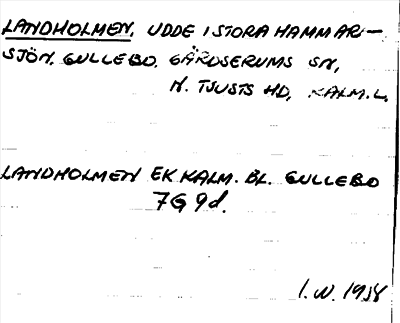 LANDHOLMEN, UDDE I STORA HAMMAR-
SJÖN, GULLEBO, GÄRDSERUMS SN,
N. TJUSTS HD, KALM. L.
LANDHOLMEN EK KALM. BL. GULLEBO
7G 9d.
I.W. 1958